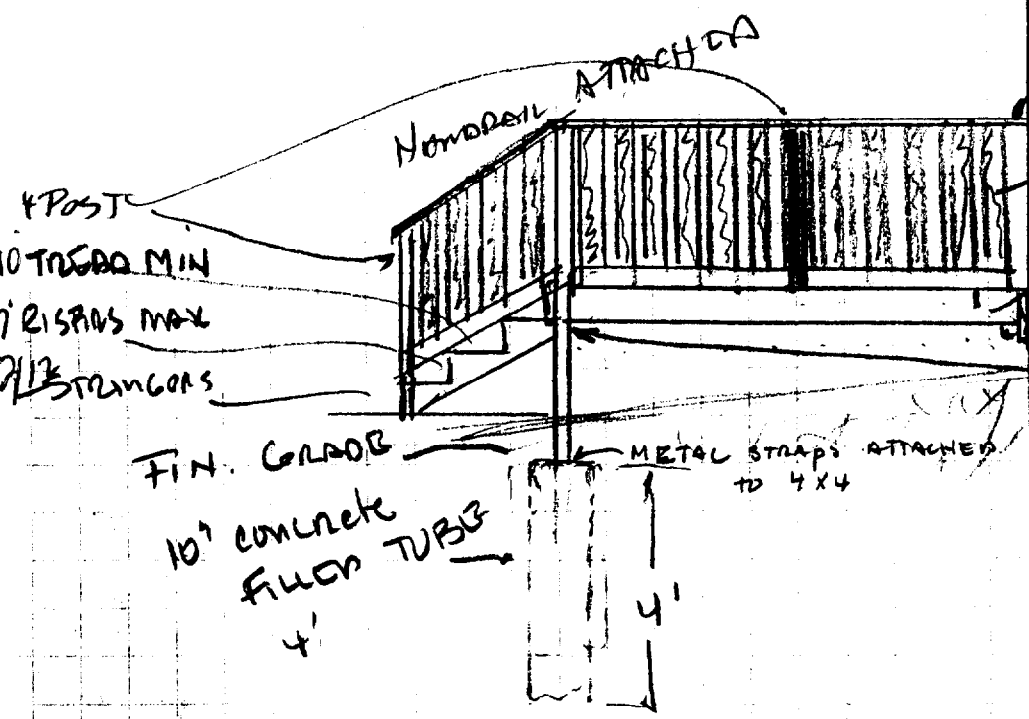 HANDRAIL ATTACHED
4 POST
10 TREAD MIN
7" RISERS MAX
2/12 STRINGERS
FIN. GRADE
METAL STRAPS ATTACHED
TO 4X4
10" CONCRETE
FILLED TUBE
4'
4'